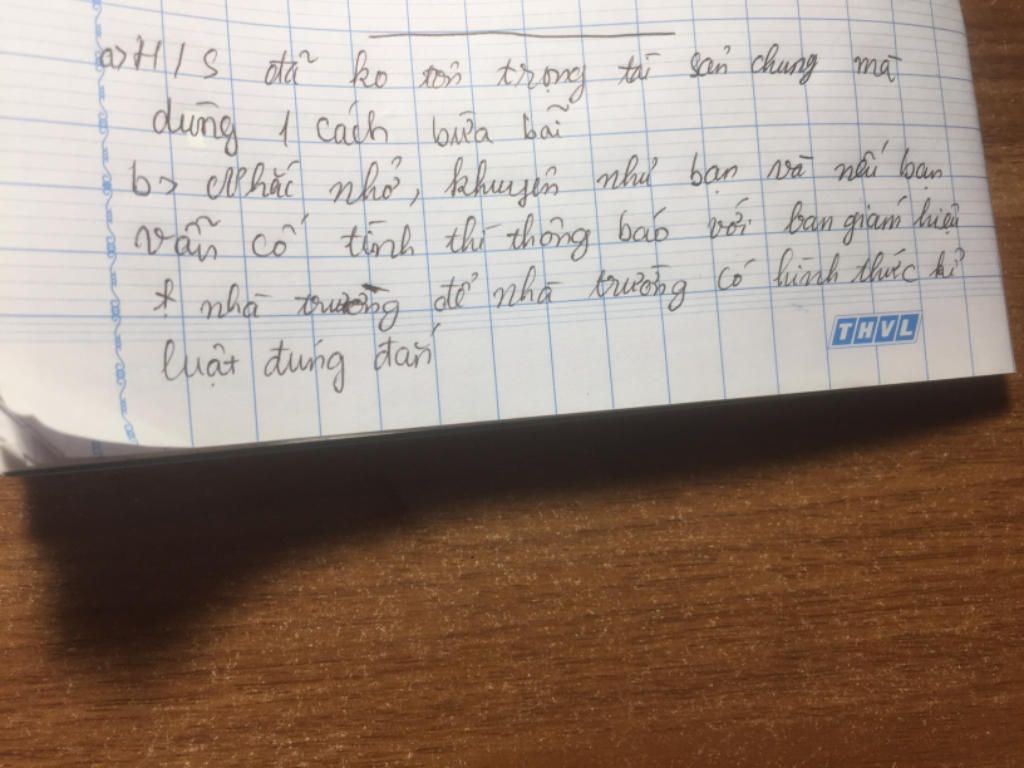 a> H/S đã ko tôn trọng tài sản chung mà
dùng 1 cách bừa bãi
b> Nhắc nhở, khuyên nhủ bạn và nếu bạn
vẫn cố tình thì thông báo với ban giám hiệu
* nhà trường để nhà trường có hình thức kỉ
luật đúng đắn
THVL